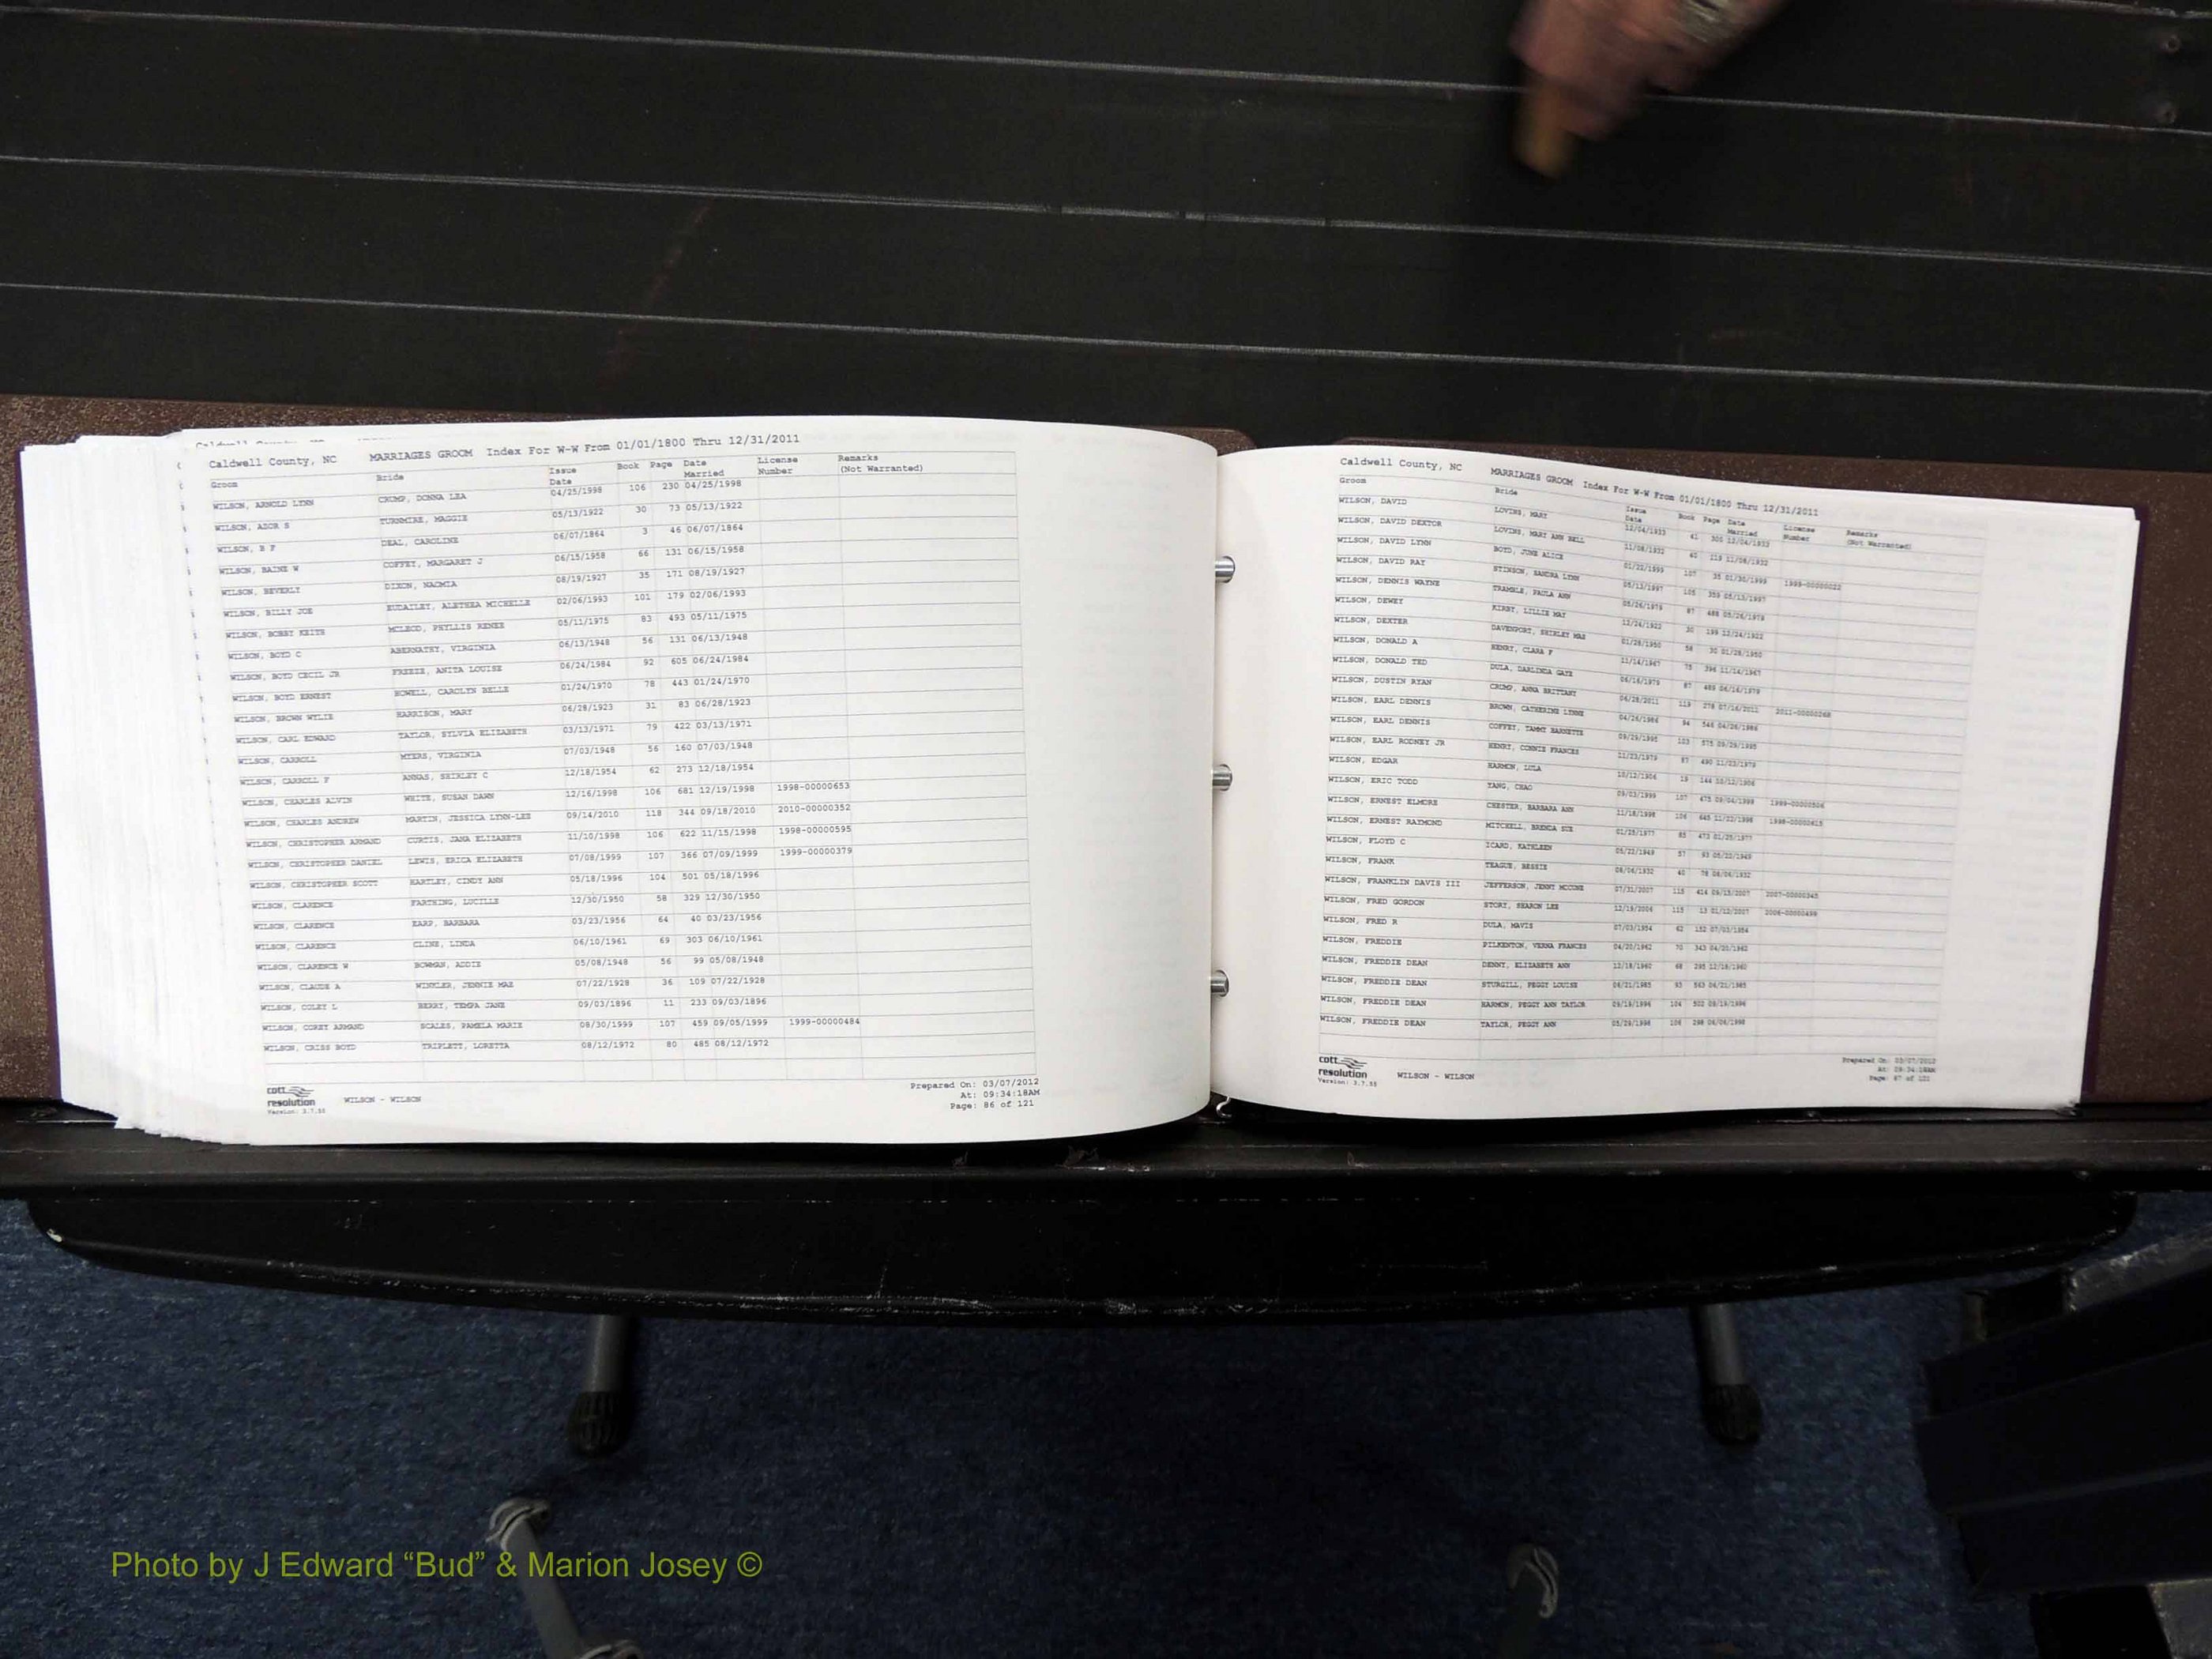 Caldwell County, NC MARRIAGES GROOM Index For W-W From 01/01/1800 Thru 12/31/2011
Groom Bride Issue Date Book Page Date Married License Number Remarks (Not Warranted)
WILSON, ARNOLD LYNN CRUMP, DONNA LEA 04/25/1998 106 230 04/25/1998
WILSON, AZOR S TURNMIRE, MAGGIE 05/13/1922 30 73 05/13/1922
WILSON, B F DEAL, CAROLINE 06/07/1864 3 46 06/07/1864
WILSON, BAINE W COFFEY, MARGARET J 06/15/1958 66 131 06/15/1958
WILSON, BEVERLY DIXON, NAOMIA 08/19/1927 35 171 08/19/1927
WILSON, BILLY JOE EUDAILEY, ALETHEA MICHELLE 02/06/1993 101 179 02/06/1993
WILSON, BOBBY KEITH MCLEOD, PHYLLIS RENEE 05/11/1975 83 493 05/11/1975
WILSON, BOYD C ABERNATHY, VIRGINIA 06/13/1948 56 131 06/13/1948
WILSON, BOYD CECIL JR FREEZE, ANITA LOUISE 06/24/1984 92 605 06/24/1984
WILSON, BOYD ERNEST HOWELL, CAROLYN BELLE 01/24/1970 78 443 01/24/1970
WILSON, BROWN WYLIE HARRISON, MARY 06/28/1923 31 83 06/28/1923
WILSON, CARL EDWARD TAYLOR, SYLVIA ELIZABETH 03/13/1971 79 422 03/13/1971
WILSON, CARROLL MYERS, VIRGINIA 07/03/1948 56 160 07/03/1948
WILSON, CARROLL F ANNAS, SHIRLEY C 12/18/1954 62 273 12/18/1954
WILSON, CHARLES ALVIN WHITE, SUSAN DAWN 12/16/1998 106 681 12/19/1998 1998-00000653
WILSON, CHARLES ANDREW MARTIN, JESSICA LYNN-LEE 09/14/2010 118 344 09/18/2010 2010-00000352
WILSON, CHRISTOPHER ARMAND CURTIS, JANA ELIZABETH 11/10/1998 106 622 11/15/1998 1998-00000595
WILSON, CHRISTOPHER DANIEL LEWIS, ERICA ELIZABETH 07/08/1999 107 366 07/09/1999 1999-00000379
WILSON, CHRISTOPHER SCOTT HARTLEY, CINDY ANN 05/18/1996 104 501 05/18/1996
WILSON, CLARENCE FARTHING, LUCILLE 12/30/1950 58 329 12/30/1950
WILSON, CLARENCE EARP, BARBARA 03/23/1956 64 40 03/23/1956
WILSON, CLARENCE CLINE, LINDA 06/10/1961 69 303 06/10/1961
WILSON, CLARENCE W BOWMAN, ADDIE 05/08/1948 56 99 05/08/1948
WILSON, CLAUDE A WINKLER, JENNIE MAE 07/22/1928 36 109 07/22/1928
WILSON, COLEY L BERRY, TEMPA JANE 09/03/1896 11 233 09/03/1896
WILSON, COREY ARMAND SCALES, PAMELA MARIE 08/30/1999 107 459 09/05/1999 1999-00000484
WILSON, CRISS BOYD TRIPLETT, LORETTA 08/12/1972 80 485 08/12/1972
cott resolution Version: 3.7.55 WILSON - WILSON
Prepared On: 03/07/2012
At: 09:34:18AM
Page: 86 of 121
Caldwell County, NC MARRIAGES GROOM Index For W-W From 01/01/1800 Thru 12/31/2011
Groom Bride Issue Date Book Page Date Married License Number Remarks (Not Warranted)
WILSON, DAVID LOVINS, MARY 12/04/1933 41 300 12/04/1933
WILSON, DAVID DEXTOR LOVINS, MARY ANN BELL 11/08/1932 40 119 11/08/1932
WILSON, DAVID LYNN BOYD, JUNE ALICE 01/22/1999 107 35 01/30/1999 1999-00000022
WILSON, DAVID RAY STINSON, SANDRA LYNN 05/13/1997 105 359 05/13/1997
WILSON, DENNIS WAYNE TRAMBLE, PAULA ANN 05/26/1979 87 488 05/26/1979
WILSON, DEWEY KIRBY, LILLIE MAY 12/24/1922 30 199 12/24/1922
WILSON, DEXTER DAVENPORT, SHIRLEY MAE 01/28/1950 58 30 01/28/1950
WILSON, DONALD A HENRY, CLARA F 11/14/1967 75 396 11/14/1967
WILSON, DONALD TED DULA, DARLINDA GAYE 06/16/1979 87 489 06/16/1979
WILSON, DUSTIN RYAN CRUMP, ANNA BRITTANY 06/28/2011 119 278 07/16/2011 2011-00000268
WILSON, EARL DENNIS BROWN, CATHERINE LYNNE 04/26/1986 94 546 04/26/1986
WILSON, EARL DENNIS COFFEY, TAMMY BARNETTE 09/29/1995 103 575 09/29/1995
WILSON, EARL RODNEY JR HENRY, CONNIE FRANCES 11/23/1979 87 490 11/23/1979
WILSON, EDGAR HARMON, LULA 10/12/1906 19 144 10/12/1906
WILSON, ERIC TODD YANG, CHAO 09/03/1999 107 475 09/04/1999 1999-00000506
WILSON, ERNEST ELMORE CHESTER, BARBARA ANN 11/18/1998 106 645 11/22/1998 1998-00000615
WILSON, ERNEST RAYMOND MITCHELL, BRENDA SUE 01/25/1977 85 473 01/25/1977
WILSON, FLOYD C ICARD, KATHLEEN 05/22/1949 57 93 05/22/1949
WILSON, FRANK TEAGUE, BESSIE 08/06/1932 40 78 08/06/1932
WILSON, FRANKLIN DAVIS III JEFFERSON, JENNY MCCUNE 07/31/2007 115 414 09/15/2007 2007-00000345
WILSON, FRED GORDON STORY, SHARON LEE 12/19/2006 115 13 01/12/2007 2006-00000499
WILSON, FRED R DULA, MAVIS 07/03/1954 62 152 07/03/1954
WILSON, FREDDIE PILKENTON, VERNA FRANCES 04/20/1962 70 343 04/20/1962
WILSON, FREDDIE DEAN DENNY, ELIZABETH ANN 12/18/1960 68 295 12/18/1960
WILSON, FREDDIE DEAN STURGILL, PEGGY LOUISE 04/21/1985 93 563 04/21/1985
WILSON, FREDDIE DEAN HARMON, PEGGY ANN TAYLOR 09/19/1996 104 502 09/19/1996
WILSON, FREDDIE DEAN TAYLOR, PEGGY ANN 05/29/1998 106 298 06/06/1998
cott resolution Version: 3.7.55 WILSON - WILSON
Prepared On: 03/07/2012
At: 09:34:18AM
Page: 87 of 121
Photo by J Edward “Bud” & Marion Josey ©